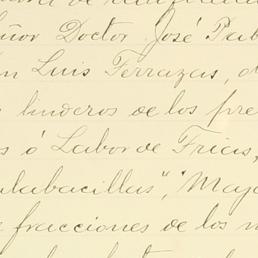 ñor Doctor José Pab
n Luis Terrazas, d
linderos de los pre
s ó Labor de Frias,
alabacillas", "Mayo
fracciones de los